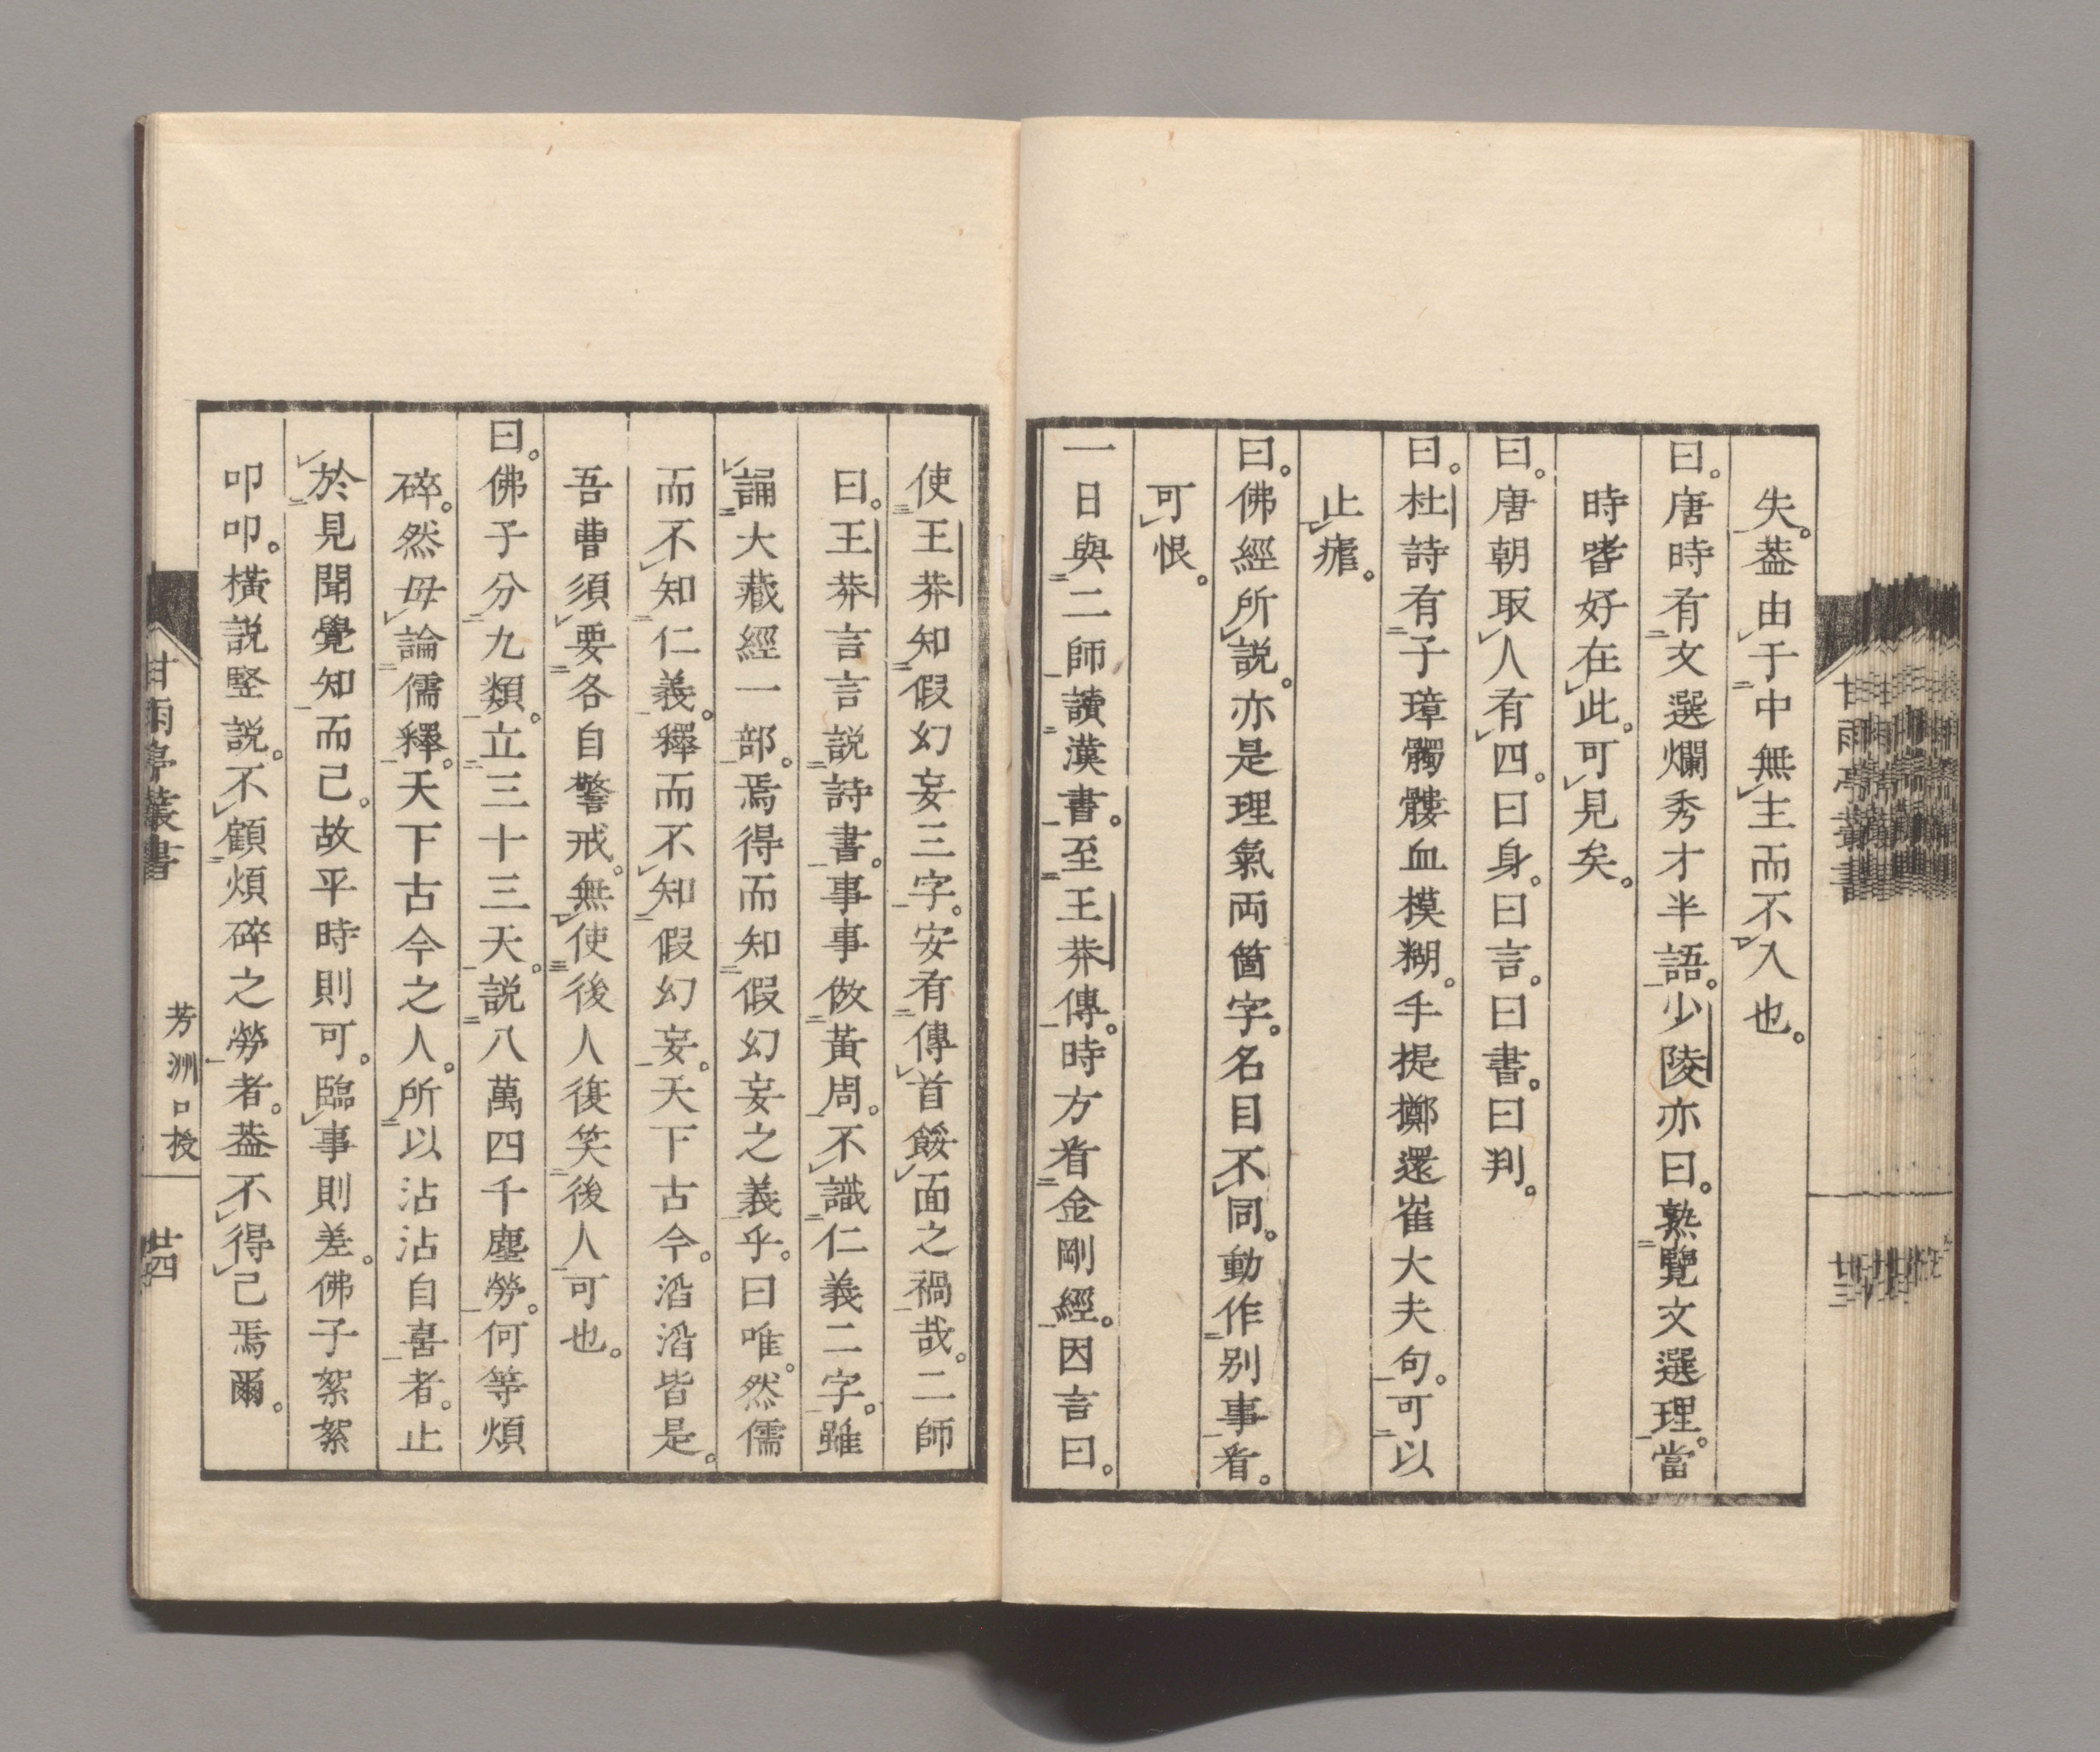 失。蓋由于中無主而不入也。
曰。唐時有文選爛秀才半語。少陵亦曰。熟覽文選理。當
時嗜好在此。可見矣。
曰。唐朝取人有四。曰身。曰言。曰書。曰判。
曰。杜詩有子璋髑髏血模糊。手提擲還崔大夫句。可以
止瘧。
曰。佛經所説。亦是理氣両箇字。名目不同。動作别事看。
可恨。
一日與二師讀漢書。至王莽傳。時方看金剛經。因言曰。
使王莽知假幻妄三字。安有傳首餒面之禍哉。二師
曰。王莽言言説詩書。事事倣黃周。不識仁義二字。雖
誦大藏經一部。焉得而知假幻妄之義乎。曰唯。然儒
而不知仁義。釋而不知假幻妄。天下古今。滔滔皆是。
吾曹須要各自警戒。無使後人復笑後人可也。
曰。佛子分九類。立三十三天。説八萬四千塵勞。何等煩
碎。然毋論儒釋。天下古今之人。所以沾沾自喜者。止
於見聞覺知而已。故平時則可。臨事則差。佛子絮絮
叩叩。橫説竪説。不顧煩碎之勞者。蓋不得己焉爾。
甘雨亭叢書
芳洲口授
廿四
甘雨亭叢書